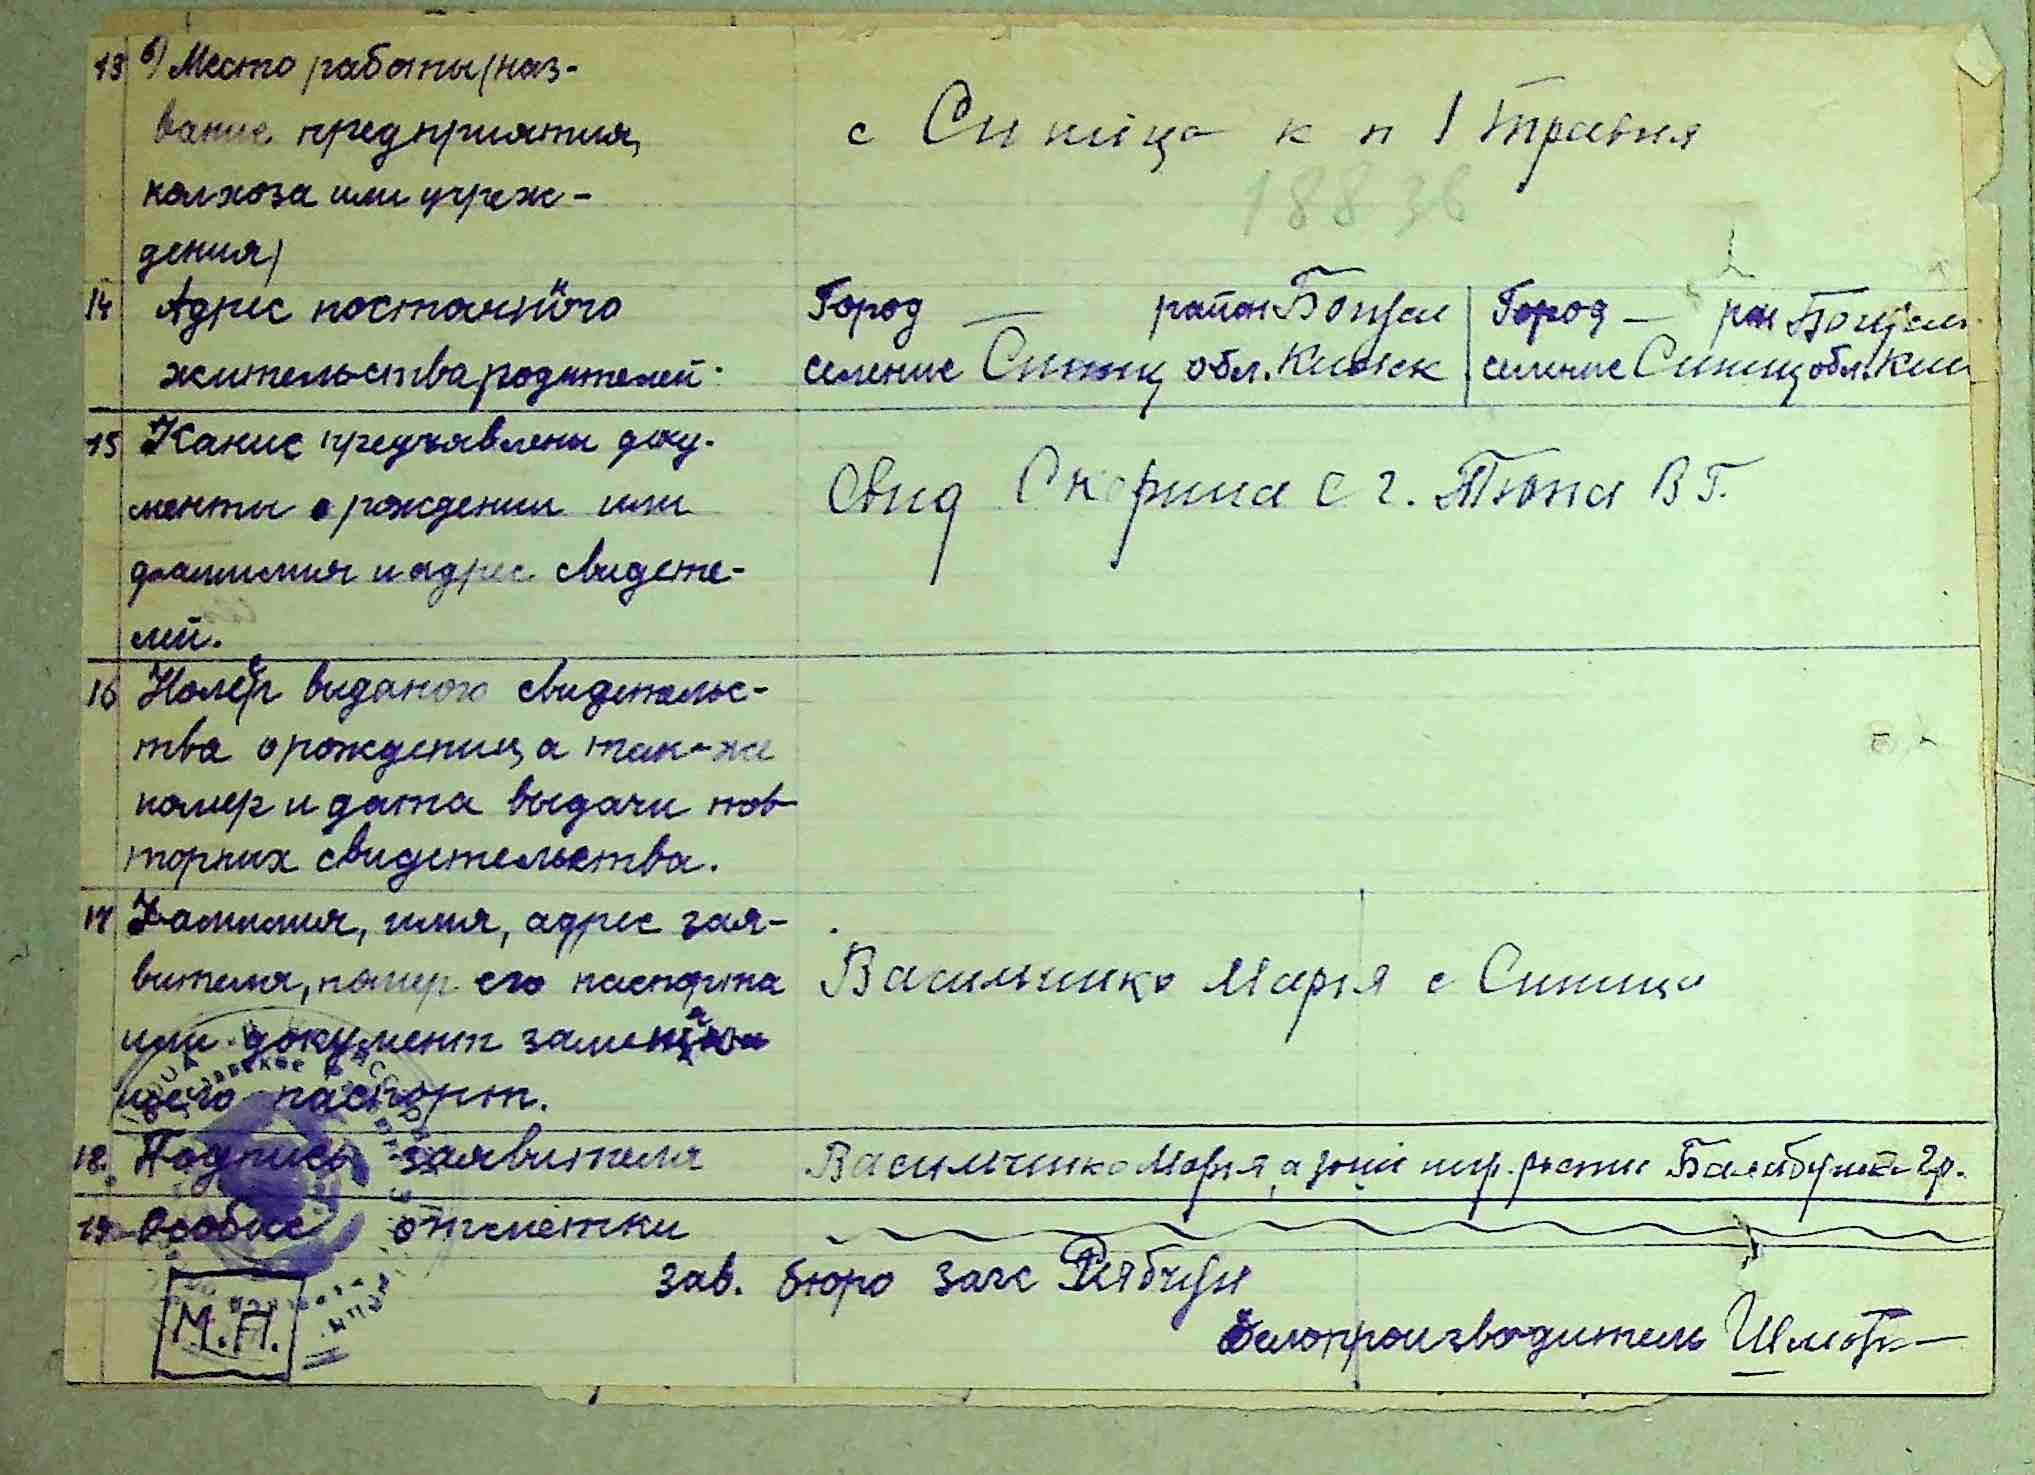 13 б) Место работы (наз-
вание предприятия,
колхоза или учреж-
дения)
с Синица к п 1 Травня
18836
14 Адрес постаннйого
жительства родителей.
Город — район Богусл
селение Синиц обл. Киевск
Город — рон Богусл
селение Синиц обл. Киев
15 Какие предъявлены доку-
менты о рождении или
фамилия и адрес свидете-
лей.
Свид с г. В Г.
16 Номер виданого свидетельс-
тва о рождении, а так-же
номер и дата выдачи пов-
торних свидетельства.
17 Фамилия, имя, адрес зая-
вителя, номер его паспорта
или документ заменяю-
щего паспорт.
Васильченко Мария с Синица
18. Подпись заявителя
Васильченко Мария, а
19 Особые отметки
зав. бюро загс Рябчун
М.П.
Делопроизводитель